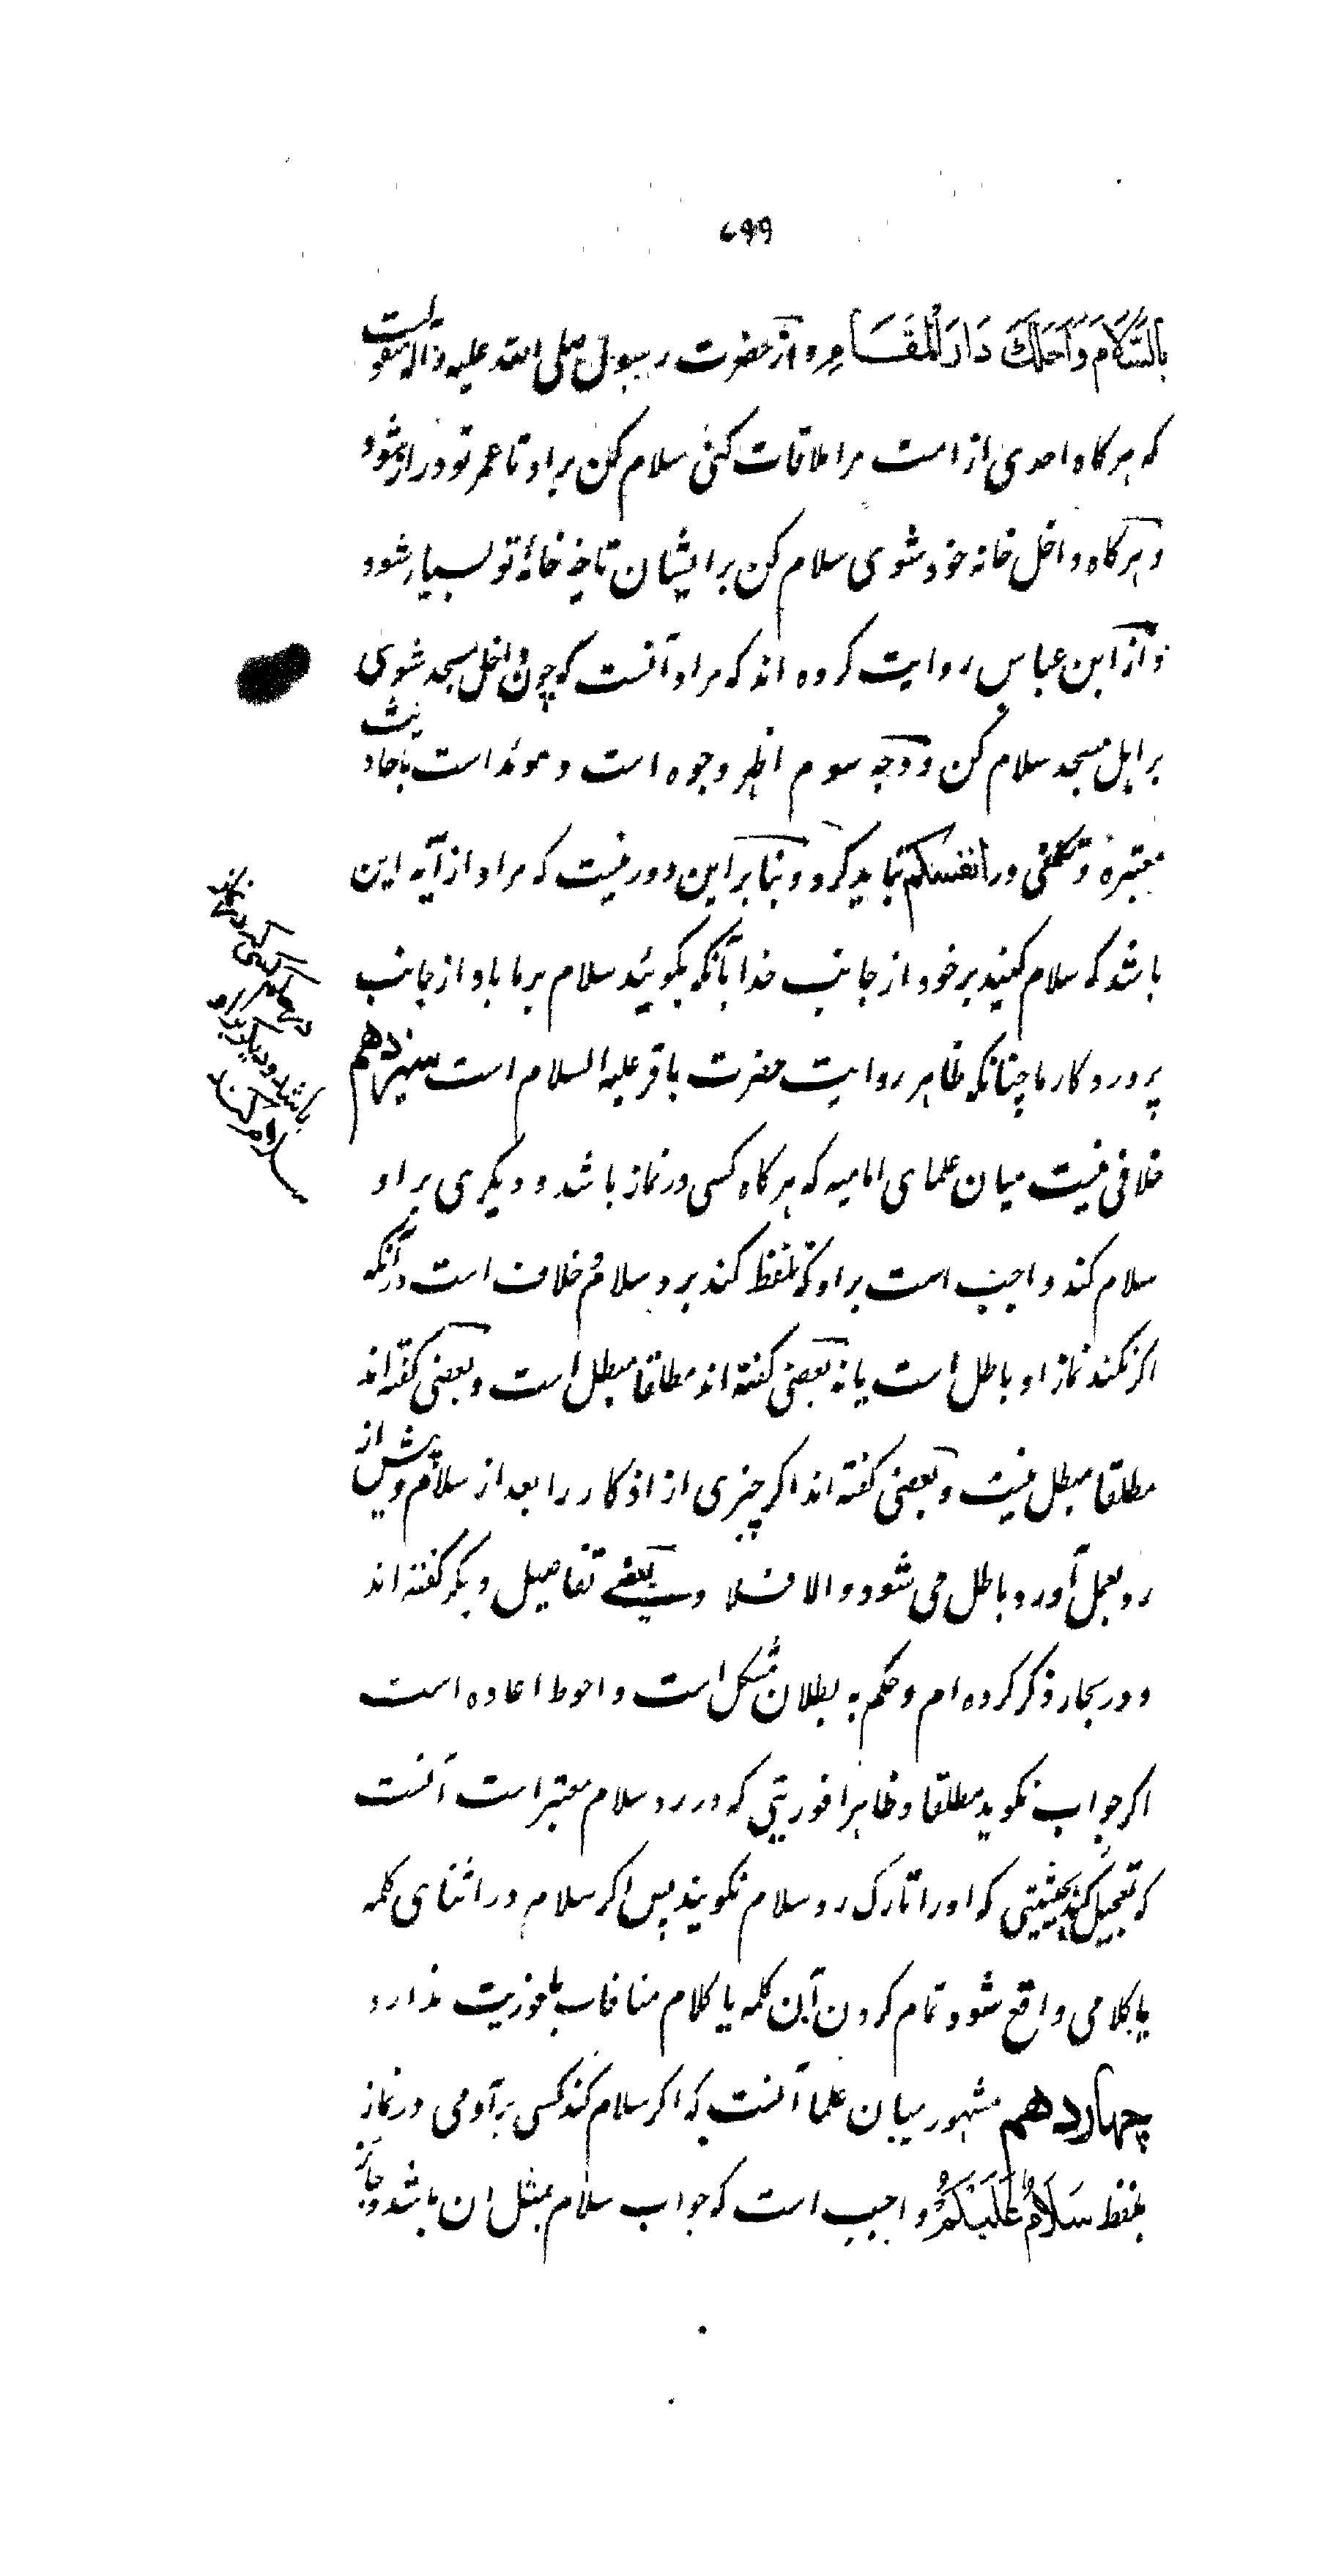 ۶۹۹
بِالسَّلَامِ وَاَحَلَّكَ دَارَ الْمُقَـامِ و از حضرت رسول صلی الله علیه و آله منقولست
که هرکاه احدی از امت مرا ملاقات کنی سلام کن بر او تا عمر تو دراز شود
و هرکاه داخل خانه خود شوی سلام کن بر ایشان تا خیر خانهٔ تو بسیار شود
و از ابن عباس روایت کرده اند که مراد آنست که چون داخل مسجد شوی
بر اهل مسجد سلام کن و وجه سوم اظهر وجوه است و موئد است باحادیث
معتبره و تکلفی در انفسکم نباید کرد و بنا بر این دور نیست که مراد از آیه این
باشد که سلام کنید بر خود از جانب خدا بآنکه بکوئید سلام بر ما باد از جانب
پروردکار ما چنانکه ظاهر روایت حضرت باقر علیه السلام است سیزدهم
خلافی نیست میان علمای امامیه که هرکاه کسی در نماز باشد و دیکری بر او
سلام کند واجب است بر او که تلفظ کند برد سلام و خلاف است در آنکه
اکر نکند نماز او باطل است یا نه بعضی کفته اند مطلقا مبطل است و بعضی کفته اند
مطلقا مبطل نیست و بعضی کفته اند اکر چیزی از اذکار را بعد از سلام و پیش از
رد بعمل آورد باطل می شود و الا فلا و بعضے تفاصیل دیکر کفته اند
و در بحار ذکر کرده ام و حکم به بطلان مشکل است و احوط اعاده است
اکر جواب نکوید مطلقا و ظاهرا فوریتی که در رد سلام معتبر است آنست
که تعجیل کند بحیثیتی که او را تارک رد سلام نکویند پس اکر سلام در اثنای کلمه
یا کلامی واقع شود تمام کردن آن کلمه یا کلام منافات با فوریت ندارد
چهاردهم مشهور میان علما آنست که اکر سلام کند کسی بر آدمی در نماز
بلفظ سَلَامٌ عَلَیْکُمْ واجب است که جواب سلام بمثل ان باشد و جایز
در حکم کسی که در نماز
باشد و دیکر بر او
سلام کند